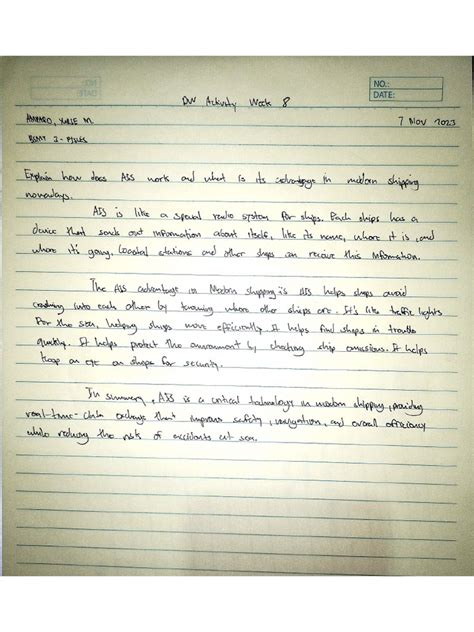 NO.:
DATE:
DW Activity Week 8
AMPARO, M.
7 Nov 2023
BSMT 2-
Explain how does AIS work and what is its advantage in modern shipping
nowadays.
AIS is like a special radio system for ships. Each ships has a
device that sends out information about itself, like its name, where it is, and
where it's going. Coastal stations and other ships can receive this information.
The AIS advantage in Modern shipping is AIS helps ships avoid
crashing into each other by knowing where other ships are. It's like traffic lights
for the sea, helping ships move efficiently. It helps find ships in trouble
quickly. It helps protect the environment by checking ship emissions. It helps
keep an eye on ships for security.
In summary, AIS is a critical technology in modern shipping, providing
real-time-data exchange that improves safety, navigation, and overall efficiency
while reducing the risk of accidents at sea.